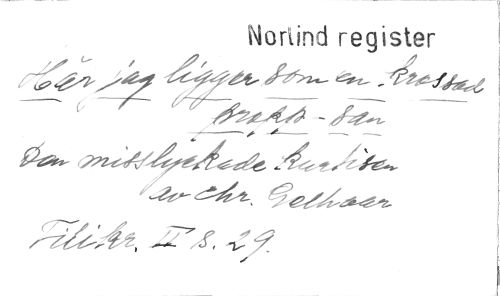 Norlind register
Här jag ligger som en krossad
propp-san
Den misslyckade kurtisen
av Chr. Gelhaar
Filikr. II s. 29.